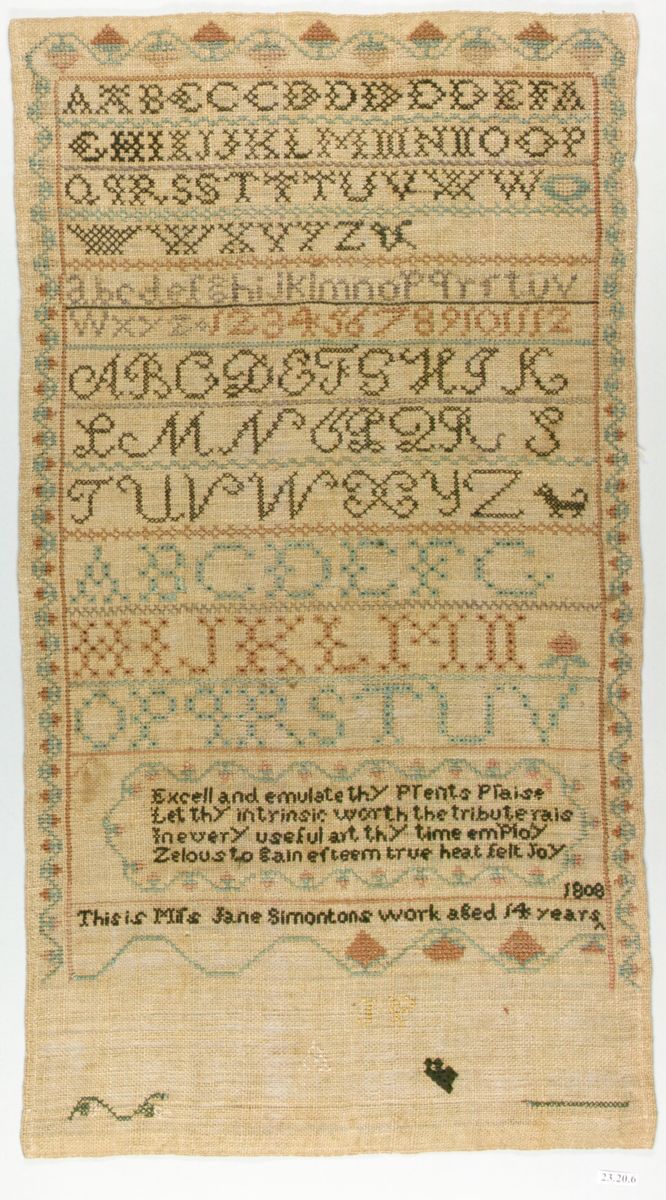 A A B C C C D D D D D E F A
G H I I J J K L M N N I O O P
Q q R S S T T T U V W W
W X Y Y Z
a b c d e f g h i j k l m n o p q r r s t u v
W x y z 1 2 3 4 5 6 7 8 9 10 11 12
A B C D E F G H I K
L M N O P Q R S
T U V W X Y Z
A B C D E F G
H I J K L M N
O P q R S T U V
Excell and emulate thy Prents Praise
Let thy intrinsic worth the tribute rais
In every useful art thy time employ
Zelous to gain esteem true heat felt Joy
1808
This is Miſs Jane Simontons work aged 14 years
23.20.6